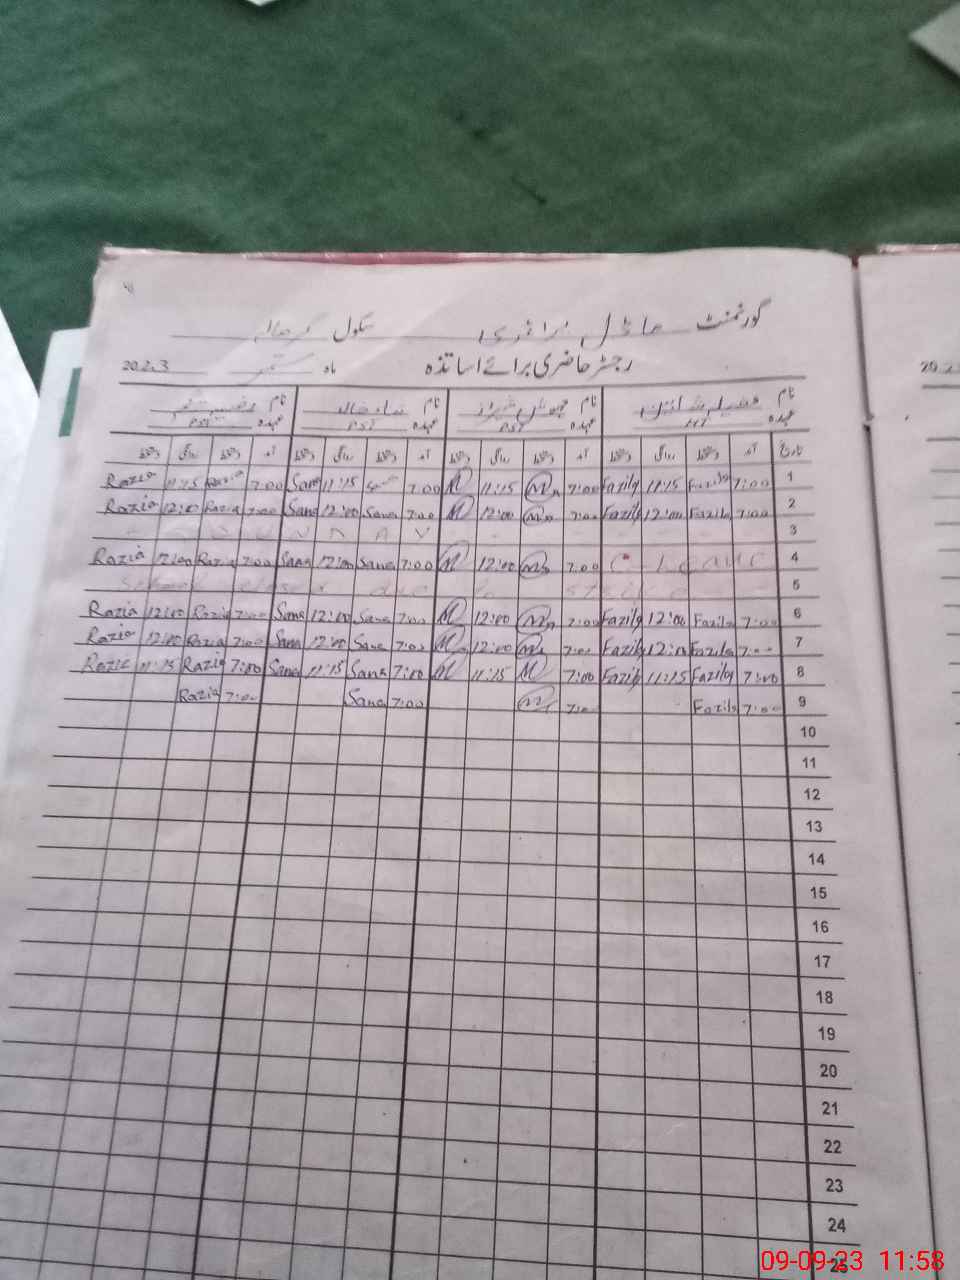 گورنمنٹ ماڈل پرائمری سکول
رجسٹر حاضری برائے اساتذہ ماہ ستمبر 2023
نام نام نام ثناء خالد نام
عہدہ HT عہدہ PST عہدہ PST عہدہ PST
تاریخ آمد دستخط روانگی دستخط آمد دستخط روانگی دستخط آمد دستخط روانگی دستخط آمد دستخط روانگی دستخط
Razia 11:15 Razia 7:00 Sana 11:15 7:00 M 11:15 7:00 Fazila 11:15 Fazila 7:00 1
Razia 12:00 Razia 7:00 Sana 12:00 Sana 7:00 M 12:00 7:00 Fazila 12:00 Fazila 7:00 2
S U N D A Y 3
Razia 12:00 Razia 7:00 Sana 12:00 Sana 7:00 M 12:00 7:00 C-Leave 4
School closed due to strike 5
Razia 12:00 Razia 7:00 Sana 12:00 Sana 7:00 M 12:00 7:00 Fazila 12:00 Fazila 7:00 6
Razia 12:00 Razia 7:00 Sana 12:00 Sana 7:00 M 12:00 7:00 Fazila 12:00 Fazila 7:00 7
Razia 11:15 Razia 7:00 Sana 11:15 Sana 7:00 M 11:15 M 7:00 Fazila 11:15 Fazila 7:00 8
Razia 7:00 Sana 7:00 7:00 Fazila 7:00 9
10
11
12
13
14
15
16
17
18
19
20
21
22
23
24
25
09-09-23 11:58